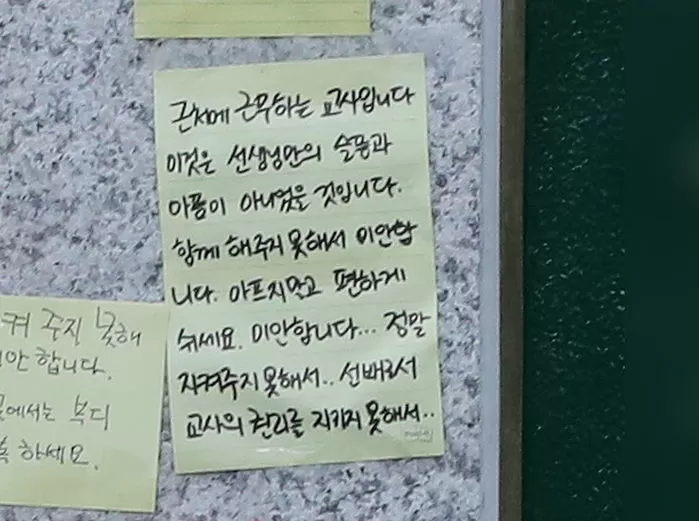 근처에 근무하는 교사입니다
이것은 선생님만의 슬픔과
아픔이 아니었을 것입니다.
함께 해주지 못해서 미안합
니다. 아프지말고 편하게
쉬세요. 미안합니다... 정말
지켜주지 못해서.. 선배로서
교사의 권리를 지키지 못해서..
켜 주지 못해
안 합니다.
에서는 부디
하세요.